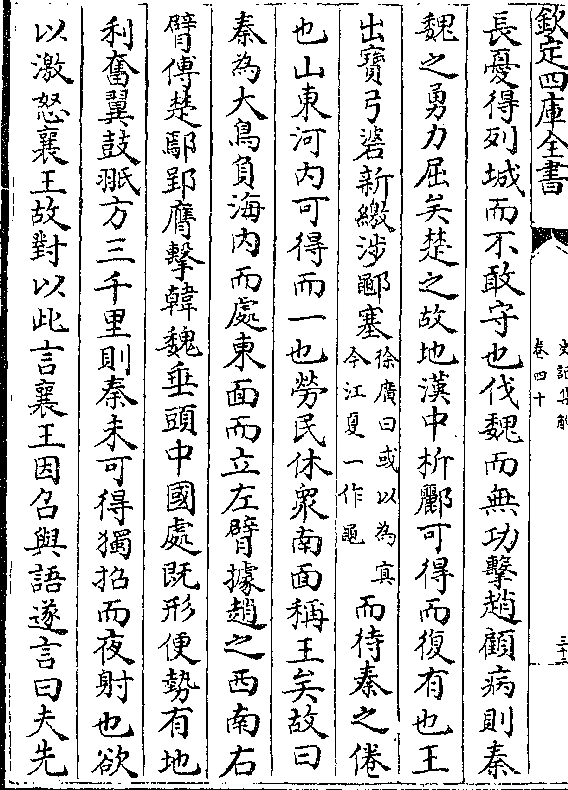 欽定四庫全書
史記集解
卷四十
三十三
長憂得列城而不敢守也伐魏而無功擊趙顧病則秦
魏之勇力屈矣楚之故地漢中析酈可得而復有也王
出寶弓碆新繳涉鄳塞徐廣曰或以為冥今江夏一作黽而待秦之倦
也山東河内可得而一也勞民休衆南面稱王矣故曰
秦為大鳥負海内而處東面而立左臂據趙之西南右
臂傅楚鄢郢膺擊韓魏垂頭中國處既形便勢有地
利奮翼鼓翄方三千里則秦未可得獨招而夜射也欲
以激怒襄王故對以此言襄王因召與語遂言曰夫先